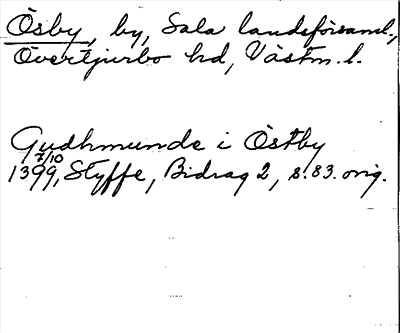 Ösby, by, Sala landsförsaml.,
Övertjurbo hd, Västm. l.
Gudhmunde i Östby
7/10
1399, Styffe, Bidrag 2, s. 83. orig.